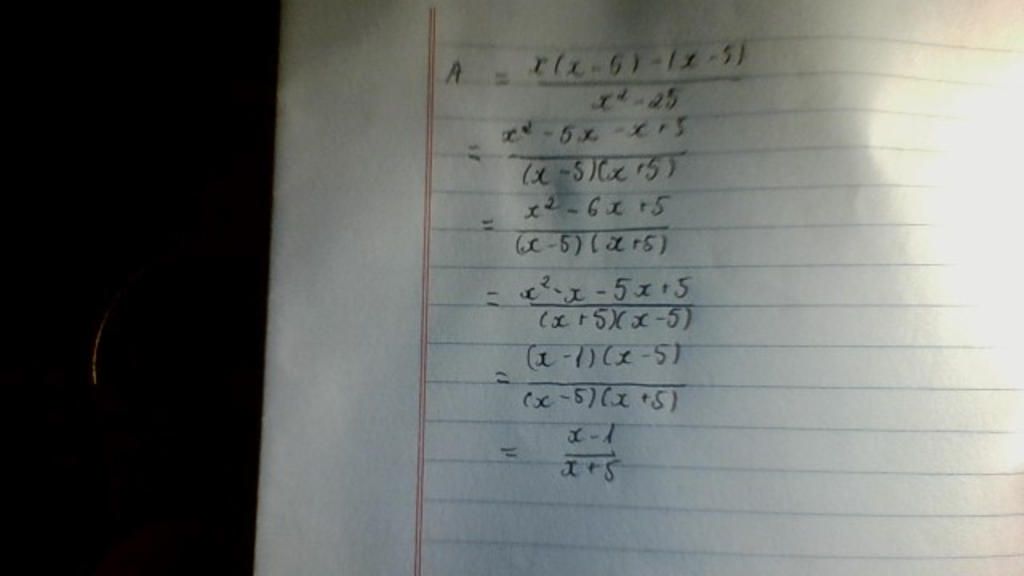 A = \frac{x(x-5)-(x-5)}{x^2-25}
= \frac{x^2-5x-x+5}{(x-5)(x+5)}
= \frac{x^2-6x+5}{(x-5)(x+5)}
= \frac{x^2-x-5x+5}{(x+5)(x-5)}
= \frac{(x-1)(x-5)}{(x-5)(x+5)}
= \frac{x-1}{x+5}